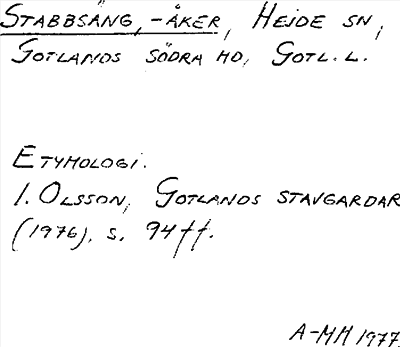 STABBSÄNG, -ÅKER, HEJDE SN,
GOTLANDS SÖDRA HD, GOTL. L.
ETYMOLOGI.
I. OLSSON, GOTLANDS STAVGARDAR
(1976), S. 94ff.
A-MM 1977.